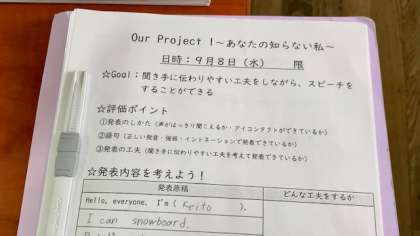 Our Project 1～あなたの知らない私～
日時：９月８日（水）　　限
☆Goal：聞き手に伝わりやすい工夫をしながら、スピーチを
することができる
☆評価ポイント
①発表のしかた（声がはっきり聞こえるか・アイコンタクトができているか）
②語句（正しい発音・強弱・イントネーションで発表できているか）
③発表の工夫（聞き手に伝わりやすい工夫を考えて発表できているか）
☆発表内容を考えよう！
発表原稿　どんな工夫をするか
Hello, everyone. I'm ( Keito ).
I can snowboard.